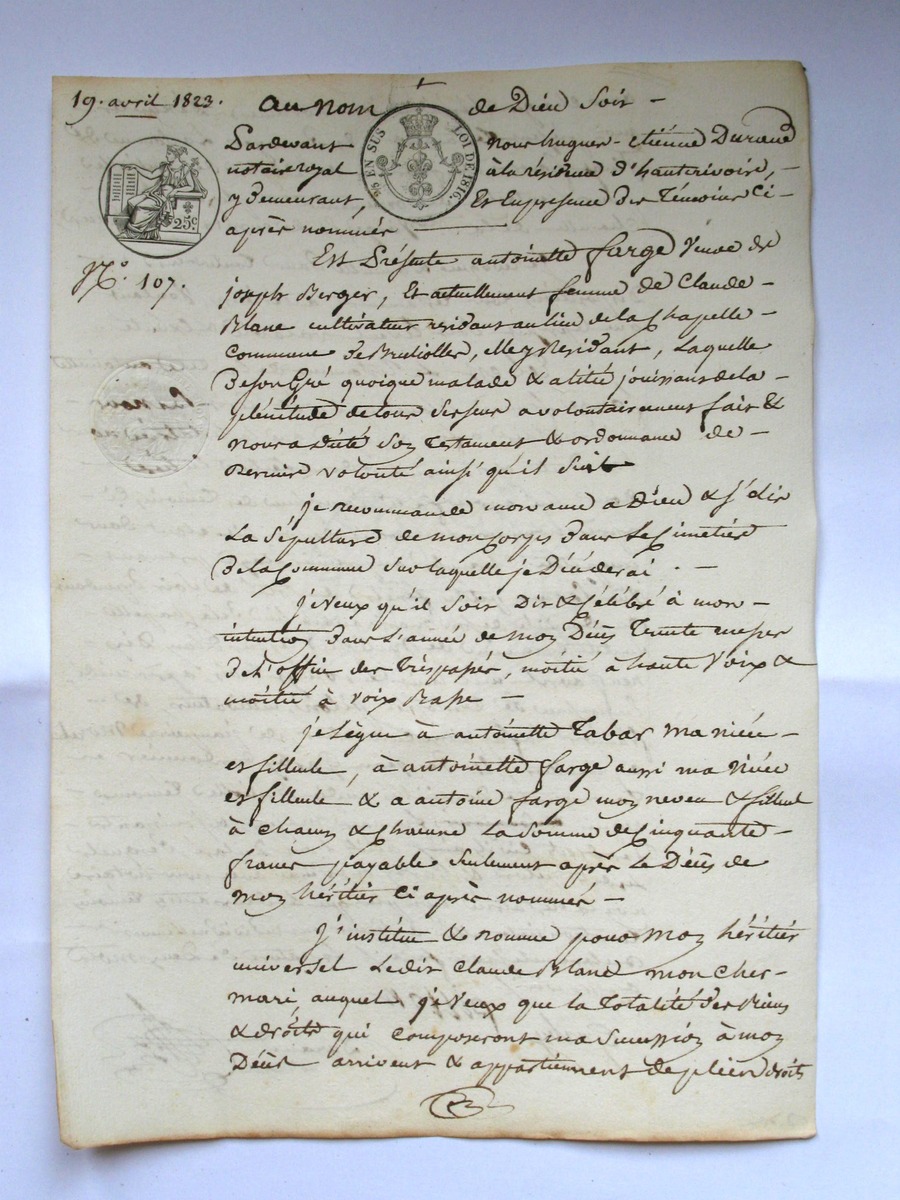 19. avril 1823. au nom de Dieu soit –
Pardevant nous hugues-etiénne Durand
notaire royal à la résidence d'hauterivoire, –
y demeurant, Et En presence des Témoins Ci –
après nommés
Est Présente antoinette farge Veuve de
N.º 107.
joseph Berger, Et actuellement femme de Claude –
Blanc cultivateur residant au lieu de la Chapelle –
Commune de Brullioles, elle y Résidant, Laquelle
de son Gré quoique malade & alitée jouissant de la –
plénitude de tous ses sens a volontairement fait &
nous a dicté son Testament & ordonnance de –
Derniere volonté ainsi qu'il suit
je recommande mon ame a Dieu & j'élis
La Sépulture de mon Corps dans Le Cimetière
de la Commune sur laquelle je Décéderai . –
je Veux qu'il soit Dit & Célébré à mon –
intention dans L'année de mon Décès Trente messes
de L'office des Trépassés, moitié à haute Voix &
moitié à voix Basse –
je Lègue à antoinette Tabar ma niéce –
et filleule, à antoinette farge aussi ma Niéce
et filleule & a antoine farge mon neveu & filleul
à Chacun & Chacune La Somme de Cinquante –
francs payable seulement après Le Décès de
mon hérítier Ci après nommé –
J'institue & nomme pour mon héritier
universel Ledit Claude Blanc mon cher –
mari, auquel je Veux que la Totalité des Biens
& droits qui composeront ma Succession à mon
Décès arrivent & appartiennent de plein droits
25.c
EN SUS
LOI DE 1816.